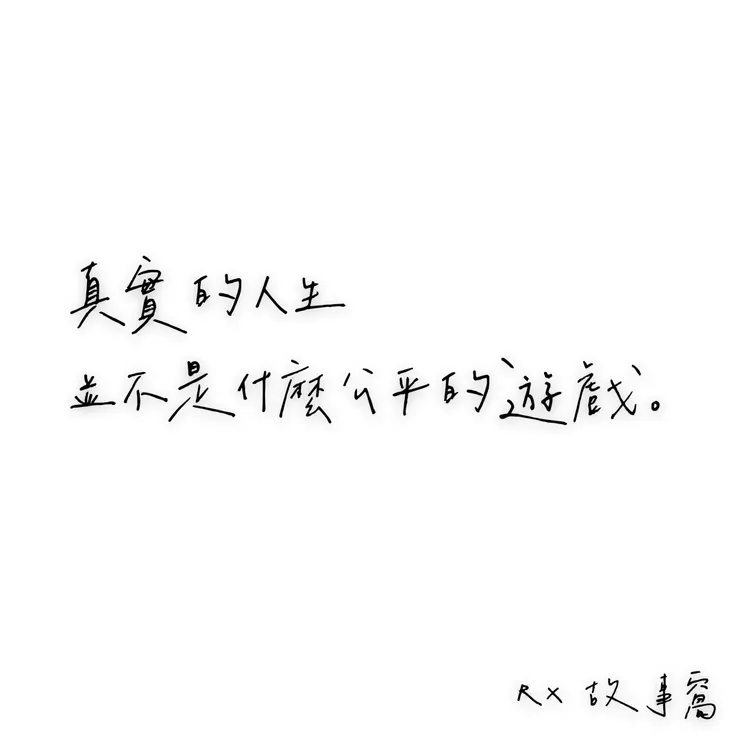 真實的人生
並不是什麼公平的遊戲。
RX 故事窩